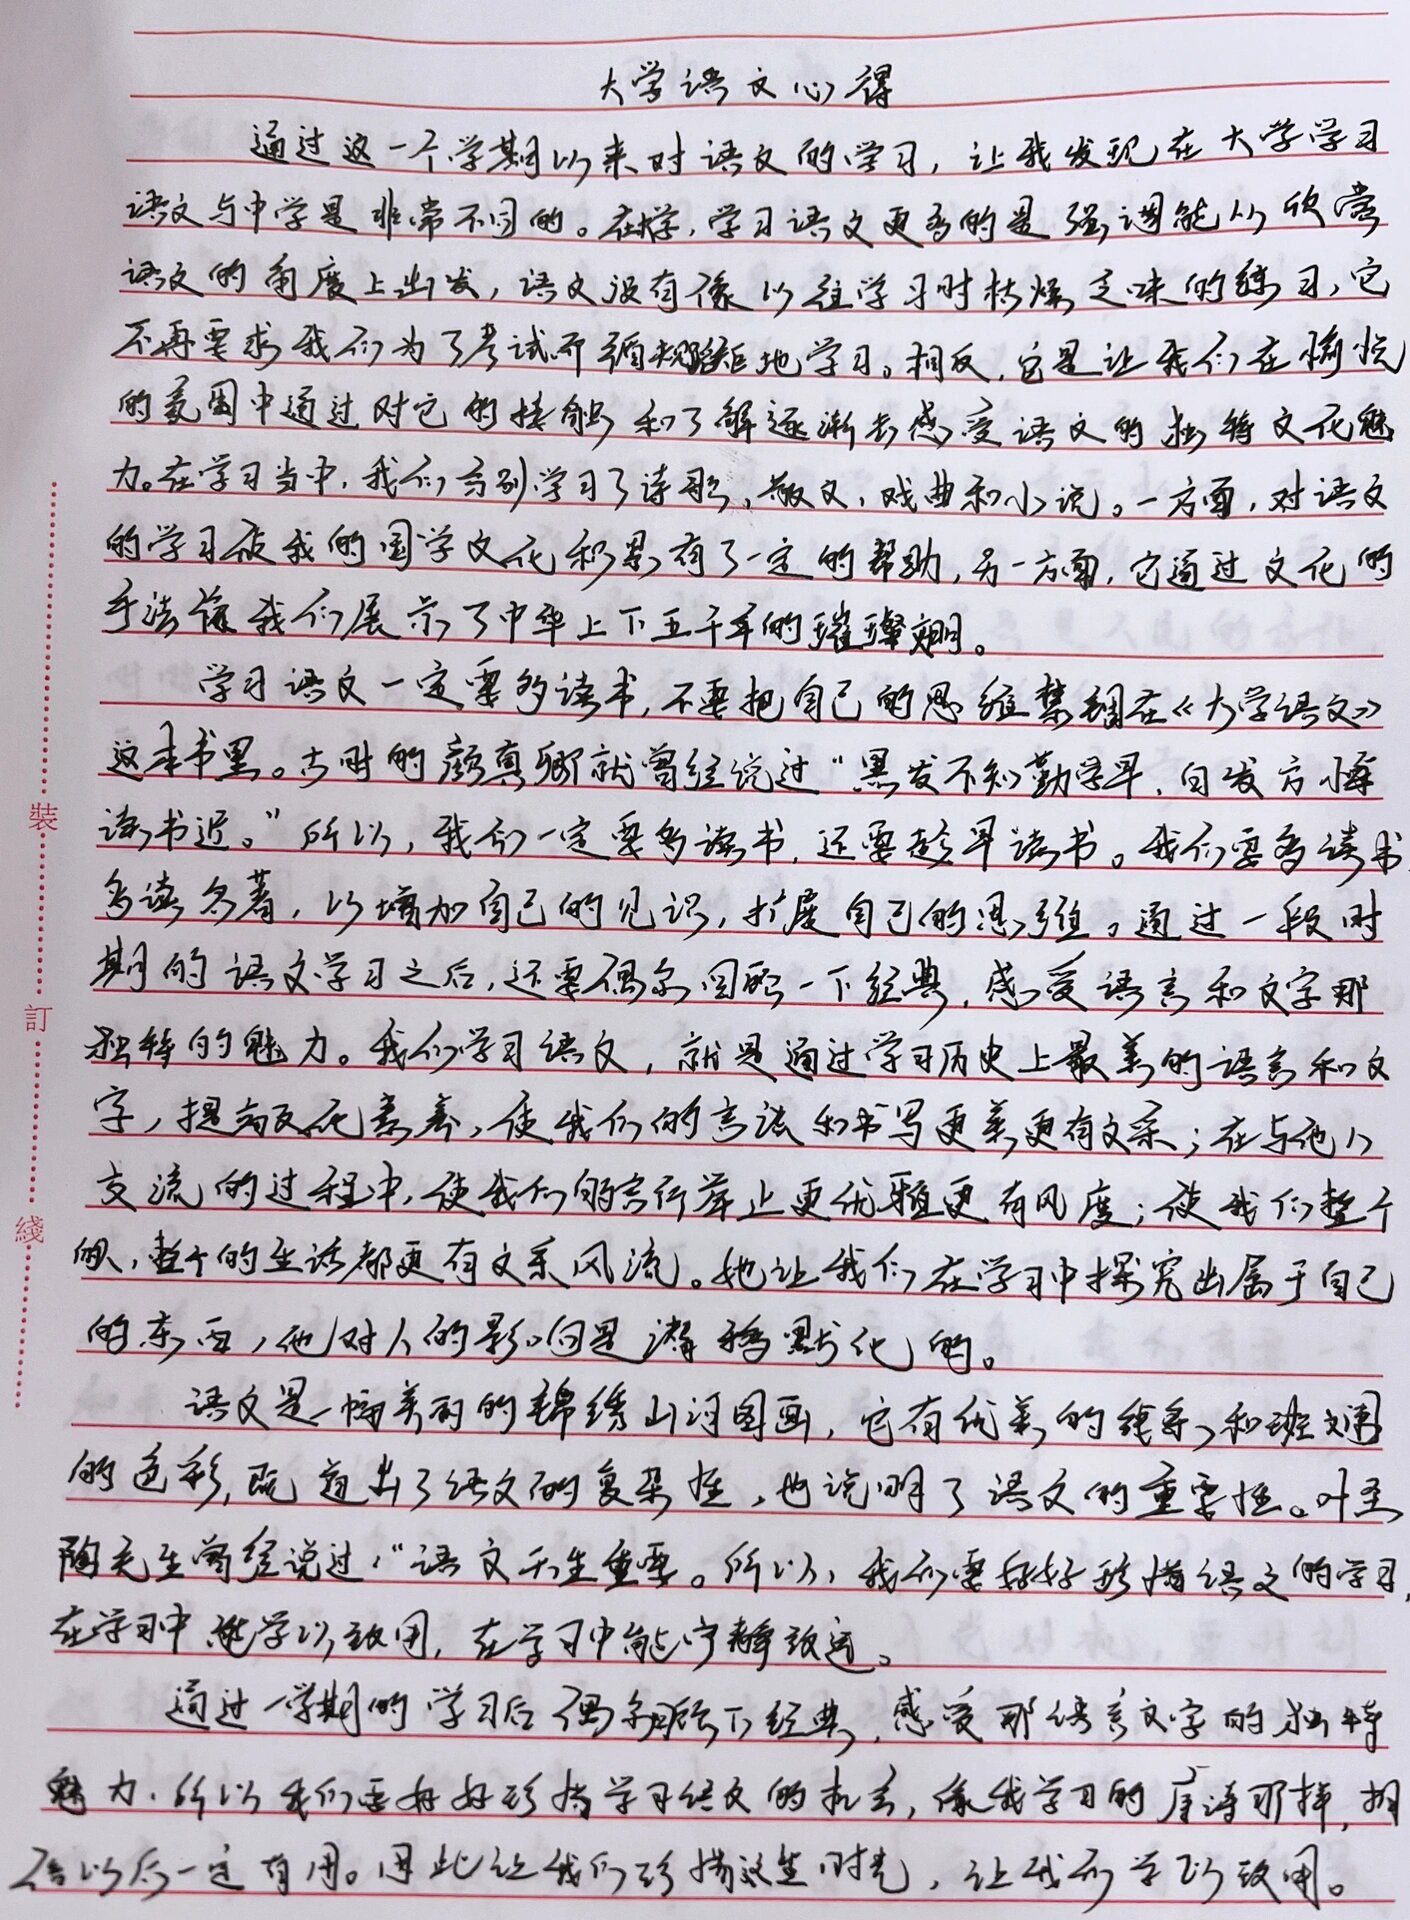 大学语文心得
通过这一个学期以来对语文的学习，让我发现在大学学习
语文与中学是非常不同的。在大学，学习语文更多的是强调能从欣赏
语文的角度上出发，语文没有像以往学习时枯燥乏味的练习，它
不再要求我们为了考试而循规蹈矩地学习。相反，它是让我们在愉悦
的氛围中通过对它的接触和了解逐渐去感受语文的独特文化魅
力。在学习当中，我们分别学习了诗歌、散文、戏曲和小说。一方面，对语文
的学习使我的国学文化积累有了一定的帮助，另一方面，它通过文化的
手法给我们展示了中华上下五千年的璀璨文明。
学习语文一定要多读书，不要把自己的思维禁锢在《大学语文》
这本书里。古时的颜真卿就曾经说过“黑发不知勤学早，白发方悔
读书迟。”所以，我们一定要多读书，还要趁早读书。我们要多读书
多读名著，以增加自己的见识，扩展自己的思维。通过一段时
期的语文学习之后，还要偶尔回顾一下经典，感受语言和文字那
独特的魅力。我们学习语文，就是通过学习历史上最美的语言和文
字，提高文化素养，使我们的言谈和书写更美更有文采；在与他人
交流的过程中，使我们的言行举止更优雅更有风度；使我们整个
人，整个的生活都更有文采风流。她让我们在学习中探究出属于自己
的东西，他对人的影响是潜移默化的。
语文是一幅美丽的锦绣山河图画，它有优美的线条和斑斓
的色彩，既道出了语文的复杂性，也说明了语文的重要性。叶圣
陶先生曾经说过，“语文天生重要。所以，我们要好好珍惜语文的学习，
在学习中能学以致用，在学习中能宁静致远。
通过一学期的学习后偶尔回顾下经典，感受那语言文字的独特
魅力，所以我们要好好珍惜学习语文的机会，像我学习的唐诗那样，相
信以后一定有用。因此让我们珍惜这些时光，让我们学以致用。
装
訂
綫